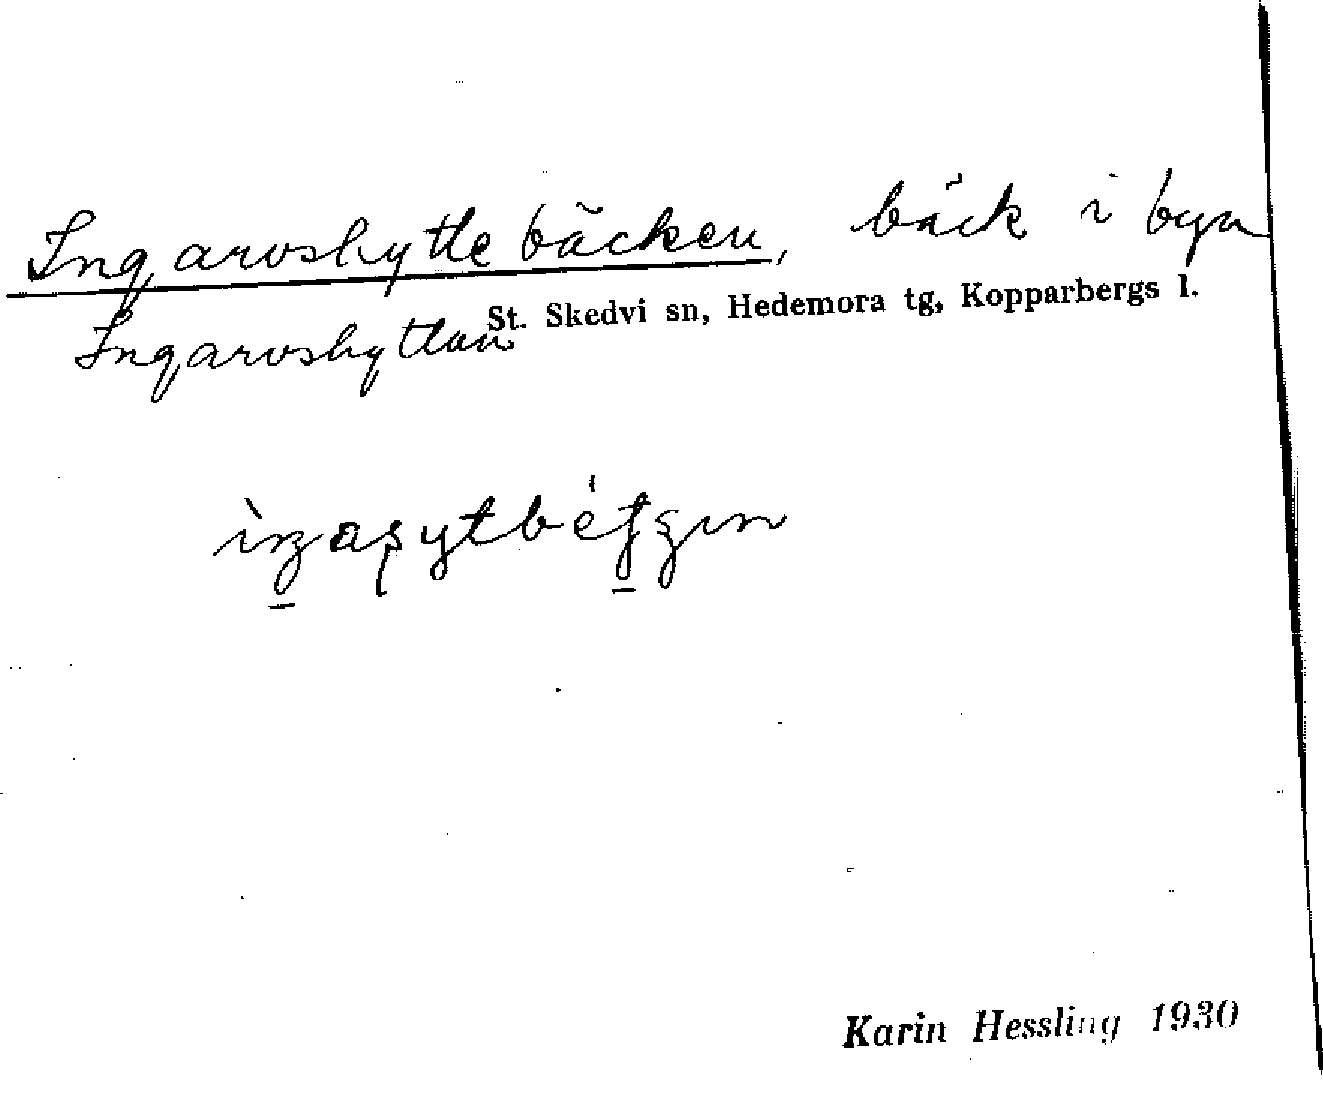 Ingarvshyttebäcken, bäck i byn
St. Skedvi sn, Hedemora tg, Kopparbergs l.
Ingarvshyttan
Karin Hessling 1930